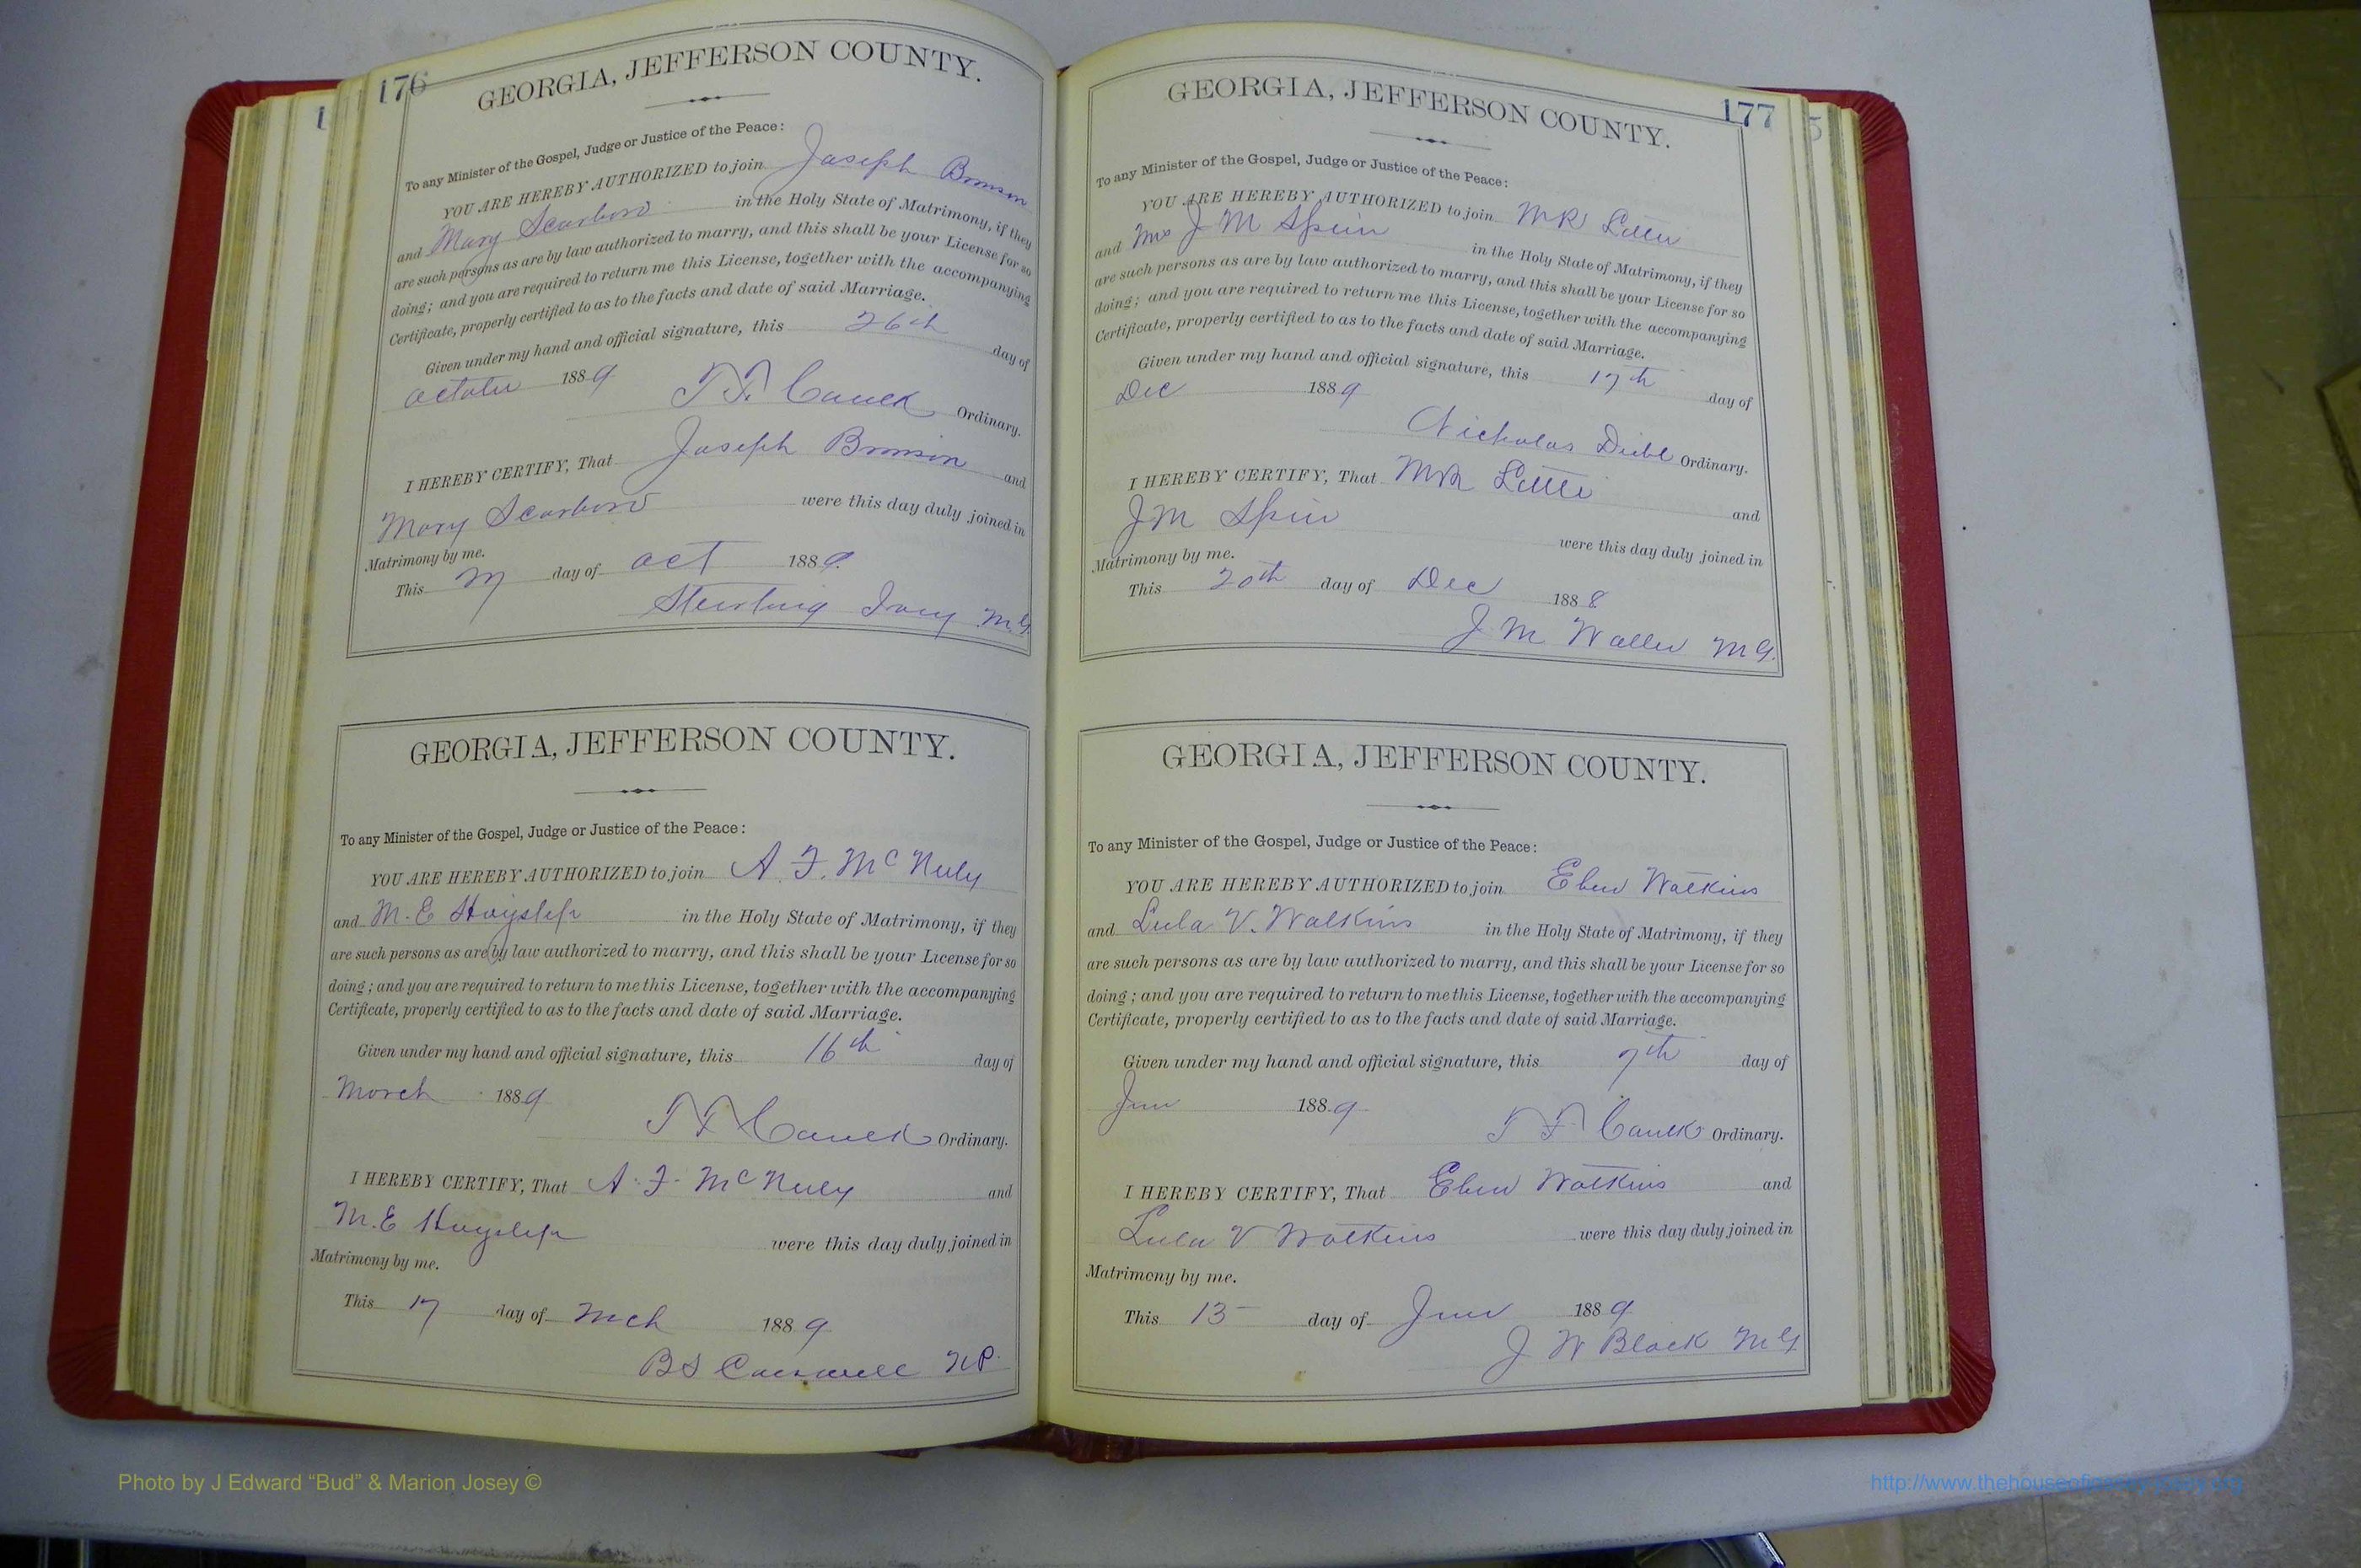 176
GEORGIA, JEFFERSON COUNTY.
To any Minister of the Gospel, Judge or Justice of the Peace:
YOU ARE HEREBY AUTHORIZED to join Joseph
and Mary Scarboro in the Holy State of Matrimony, if they
are such persons as are by law authorized to marry, and this shall be your License for so
doing; and you are required to return me this License, together with the accompanying
Certificate, properly certified to as to the facts and date of said Marriage.
Given under my hand and official signature, this 26th day of
1889 Ordinary.
I HEREBY CERTIFY, That Joseph and
Mary Scarboro were this day duly joined in
Matrimony by me.
This day of Oct 1889
M.G.
GEORGIA, JEFFERSON COUNTY.
To any Minister of the Gospel, Judge or Justice of the Peace:
YOU ARE HEREBY AUTHORIZED to join A. F. McNeely
and M. E in the Holy State of Matrimony, if they
are such persons as are by law authorized to marry, and this shall be your License for so
doing; and you are required to return to me this License, together with the accompanying
Certificate, properly certified to as to the facts and date of said Marriage.
Given under my hand and official signature, this 16th day of
March 1889
Ordinary.
I HEREBY CERTIFY, That A. F. McNeely and
M. E were this day duly joined in
Matrimony by me.
This 17 day of Mch 1889
B S NP
177
GEORGIA, JEFFERSON COUNTY.
To any Minister of the Gospel, Judge or Justice of the Peace:
YOU ARE HEREBY AUTHORIZED to join
and Mrs J M in the Holy State of Matrimony, if they
are such persons as are by law authorized to marry, and this shall be your License for so
doing; and you are required to return me this License, together with the accompanying
Certificate, properly certified to as to the facts and date of said Marriage.
Given under my hand and official signature, this 17th day of
Dec 1889
Nicholas Diehl Ordinary.
I HEREBY CERTIFY, That and
J M were this day duly joined in
Matrimony by me.
This 20th day of Dec 1888
J M M G.
GEORGIA, JEFFERSON COUNTY.
To any Minister of the Gospel, Judge or Justice of the Peace:
YOU ARE HEREBY AUTHORIZED to join Eben Watkins
and Lula V. Watkins in the Holy State of Matrimony, if they
are such persons as are by law authorized to marry, and this shall be your License for so
doing; and you are required to return to me this License, together with the accompanying
Certificate, properly certified to as to the facts and date of said Marriage.
Given under my hand and official signature, this 7th day of
1889
Ordinary.
I HEREBY CERTIFY, That Eben Watkins and
Lula V Watkins were this day duly joined in
Matrimony by me.
This 13 day of 1889
J W Black M G
Photo by J Edward “Bud” & Marion Josey ©